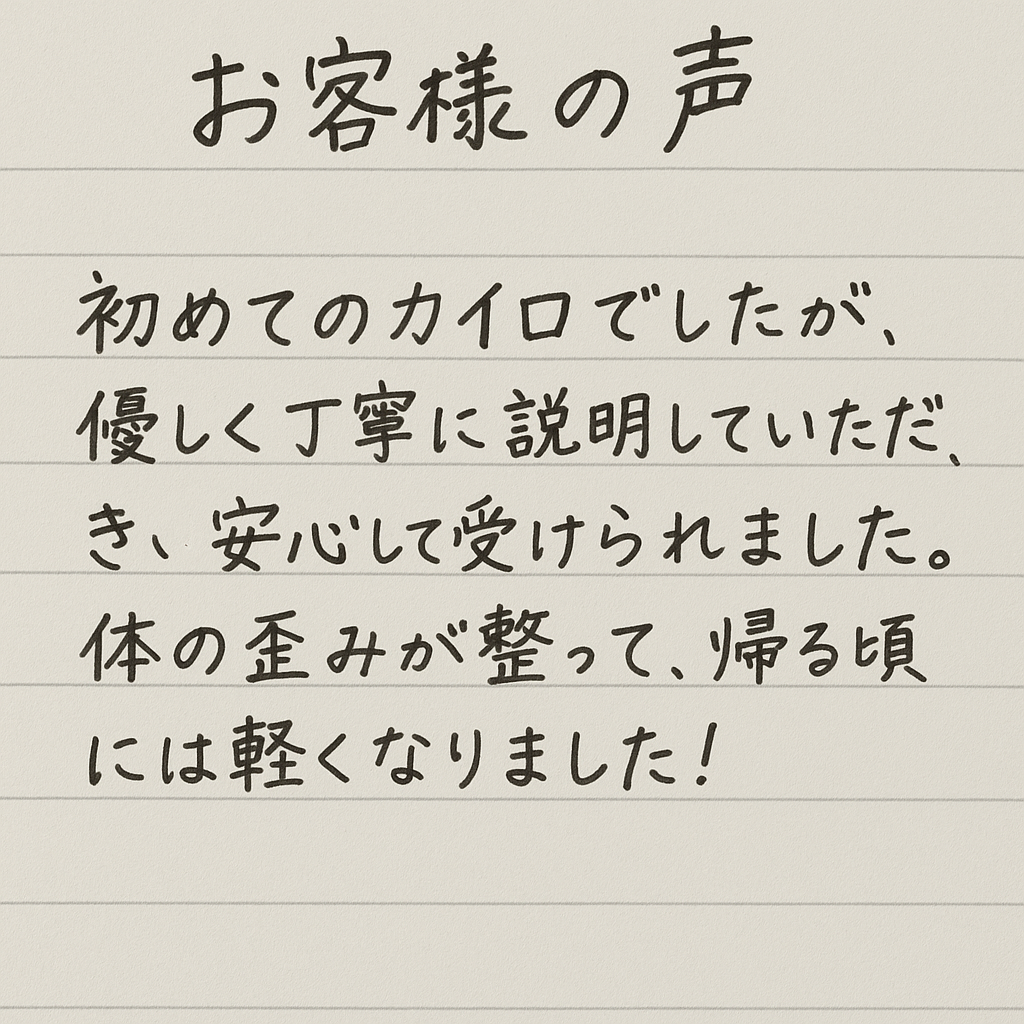 お客様の声
初めてのカイロでしたが、
優しく丁寧に説明していただ、
き、安心して受けられました。
体の歪みが整って、帰る頃
には軽くなりました！